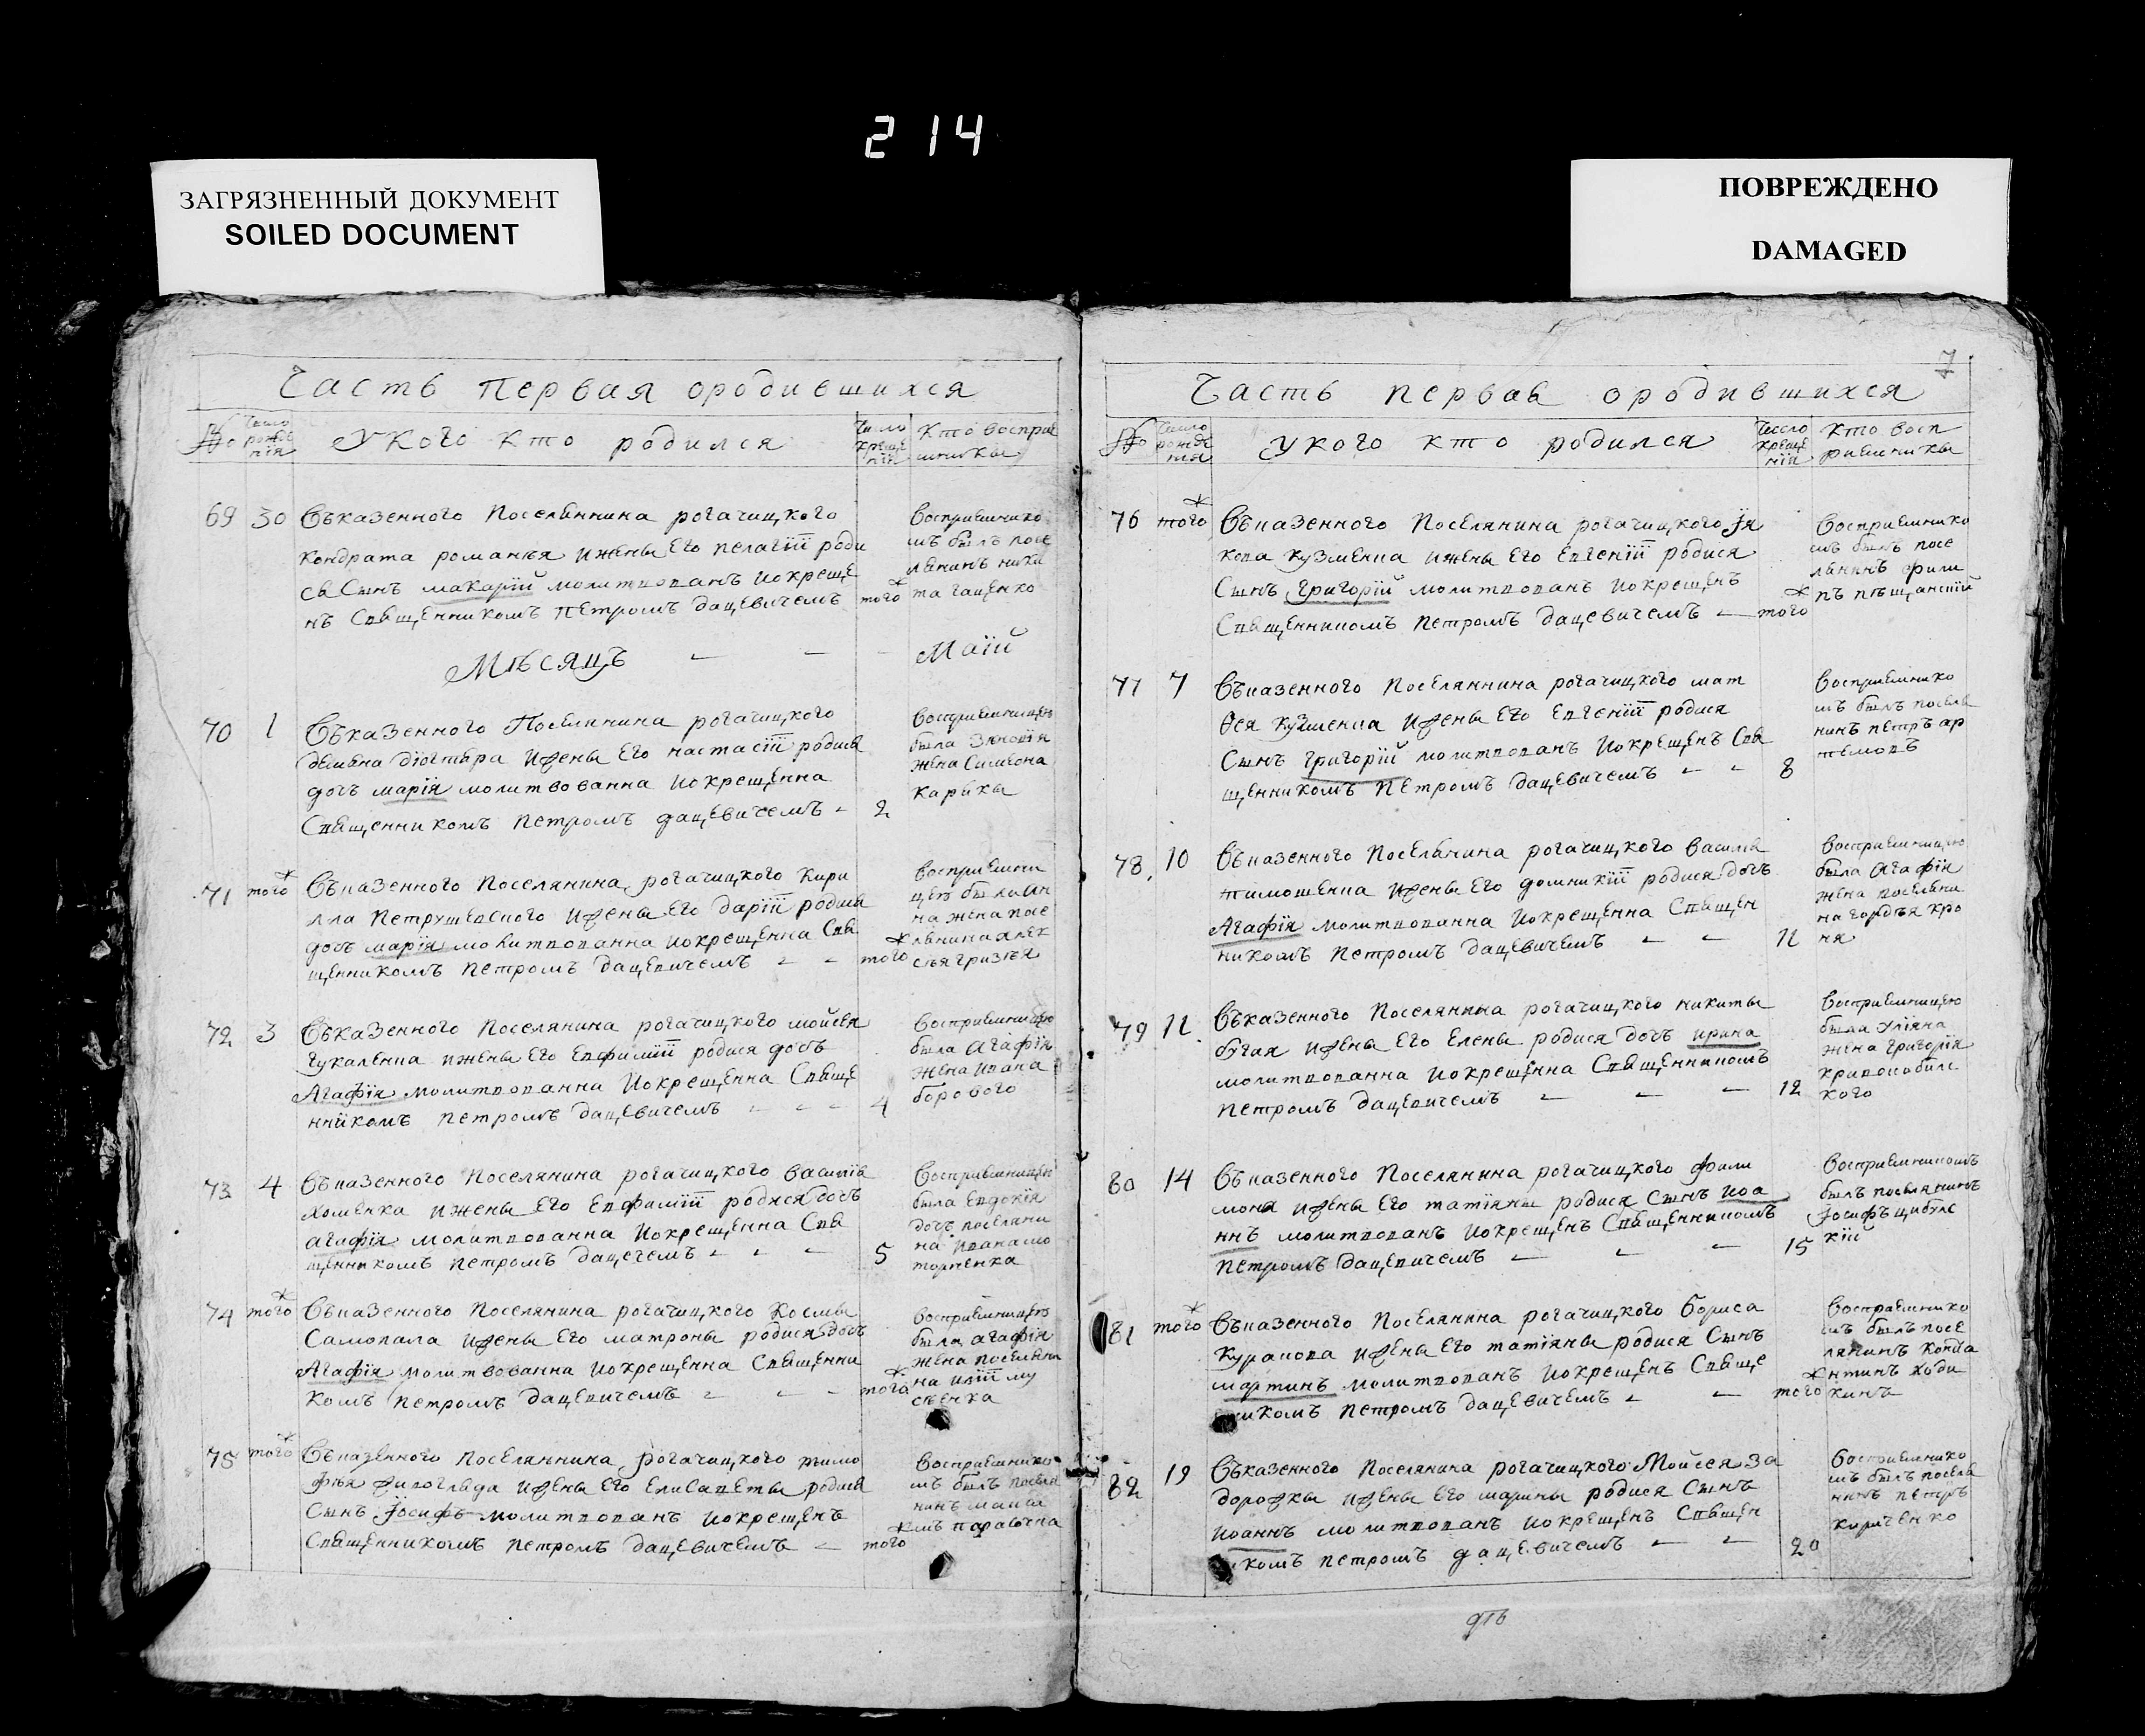 214
ЗАГРЯЗНЕННЫЙ ДОКУМЕНТ
SOILED DOCUMENT
ПОВРЕЖДЕНО
DAMAGED
Часть первая ородившихся
№ число рожде нія
У кого кто родился
число креще нія
кто воспріе мникы
69 30 Въказенного Поселянина рогачицкого
кондрата романья ижены Его пелагіи роди
ся Сынъ макарій молитвованъ Иокреще
нъ Священникомъ Петромъ дацевичемъ
того
Воспрiемнико
мъ былъ посе
лянинъ ники
та гаценко
Мѣсяцъ Маій
70 1 Въказенного Поселянина рогачицкого
демяна діогтяра Ижены Его настасіи родися
дочь марія молитвованна Иокрещенна
Священникомъ Петромъ дацевичемъ
2
Воспріемницею
была Зиновія
жена Симеона
Карякы
71 того Въказенного Поселянина рогачицкого Кири
лла Петрушевского Ижены Его даріи родися
дочь марія молитвованна Иокрещенна Свя
щенникомъ Петромъ дацевичемъ
того
Воспріемни
цею была Ан
на жена посе
лянина алек
сѣя гризѣя
72 3 Въказенного Поселянина рогачицкого мойсея
Чукаленка ижены Его Евфиміи родися дочь
Агафія молитвованна Иокрещенна Свяще
нникомъ Петромъ дацевичемъ
4
Воспріемницею
была Агафія
жена ивана
борового
73 4 Въказенного Поселянина рогачицкого василія
хоменка ижены Его Евфиміи родися дочь
агафія молитвованна Иокрещенна Свя
щенникомъ Петромъ дацечемъ
5
Воспріемницею
была Евдокія
дочь поселяни
на ивана мо
торненка
74 того Въказенного Поселянина рогачицкого Космы
Самопала Ижены Его матроны родися дочь
Агафія молитвованна Иокрещенна Священни
комъ Петромъ дацевичемъ
того
Воспріемницею
была агафія
жена поселяни
на иліи му
сѣенка
75 того Въказенного Поселянина рогачицкого тимо
фѣя Ижены Его Елисаветы родися
Сынъ Іосифъ молитвованъ Иокрещенъ
Священникомъ Петромъ дацевичемъ
того
Воспріемнико
мъ былъ поселя
нинъ макси
мъ
7
Часть первая ородившихся
№ число рожде нія
У кого кто родился
число креще нія
кто восп ріемникы
76 того Въказенного Поселянина рогачицкого Ія
кова кузменка ижены Его Евгеніи родися
Сынъ Григорій молитвованъ Иокрещенъ
Священникомъ Петромъ дацевичемъ
того
Воспріемнико
мъ былъ посе
лянинъ фили
пъ пѣщанскій
77 7 Въказенного Поселяннина рогачицкого мат
ѳея кузменка Ижены Его Евгеніи родися
Сынъ григорій молитвованъ Иокрещенъ Свя
щенникомъ Петромъ дацевичемъ
8
Воспріемнико
мъ былъ поселя
нинъ петръ ар
темовъ
78. 10 Въказенного Поселянина рогачицкого василя
тимошенка Ижены Его домникіи родися дочь
Агафія молитвованна Иокрещенна Священ
никомъ Петромъ дацевичемъ
11
Воспріемницею
была Агафія
жена поселяни
на гордѣя кро
ня
79 11. Въказенного Поселянина рогачицкого никиты
бугая Ижены Его Елены родися дочь ирина
молитвованна Иокрещенна Священникомъ
Петромъ дацевичемъ
12
Воспріемницею
была Уліяна
жена Григорія
кривокобилс
кого
80 14 Въказенного Поселянина рогачицкого фили
мона Ижены Его татіяны родися Сынъ Иоа
ннъ молитвованъ Иокрещенъ Священникомъ
Петромъ дацевичемъ
15
Воспріемникомъ
былъ поселянинъ
Іосифъ цибулс
кій
81 того Въказенного Поселянина рогачицкого бориса
Куракова Ижены Его татіяны родися Сынъ
мартинъ молитвованъ Иокрещенъ Свяще
никомъ Петромъ дацевичемъ
того
Воспріемнико
мъ былъ посе
лянинъ Конста
нтинъ ходи
кинъ
82 19 Въказенного Поселянина рогачицкого Мойсея За
дорожкы Ижены Его марины родися Сынъ
Иоаннъ молитвованъ Иокрещенъ Священ
икомъ петромъ дацевичемъ
20
Воспріемнико
мъ былъ поселя
нинъ петръ
кириченко